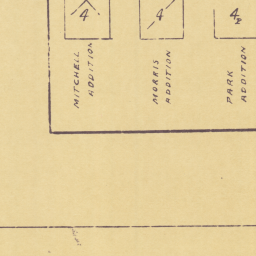 4
4
4
MITCHELL
ADDITION
MORRIS
ADDITION
PARK
ADDITION